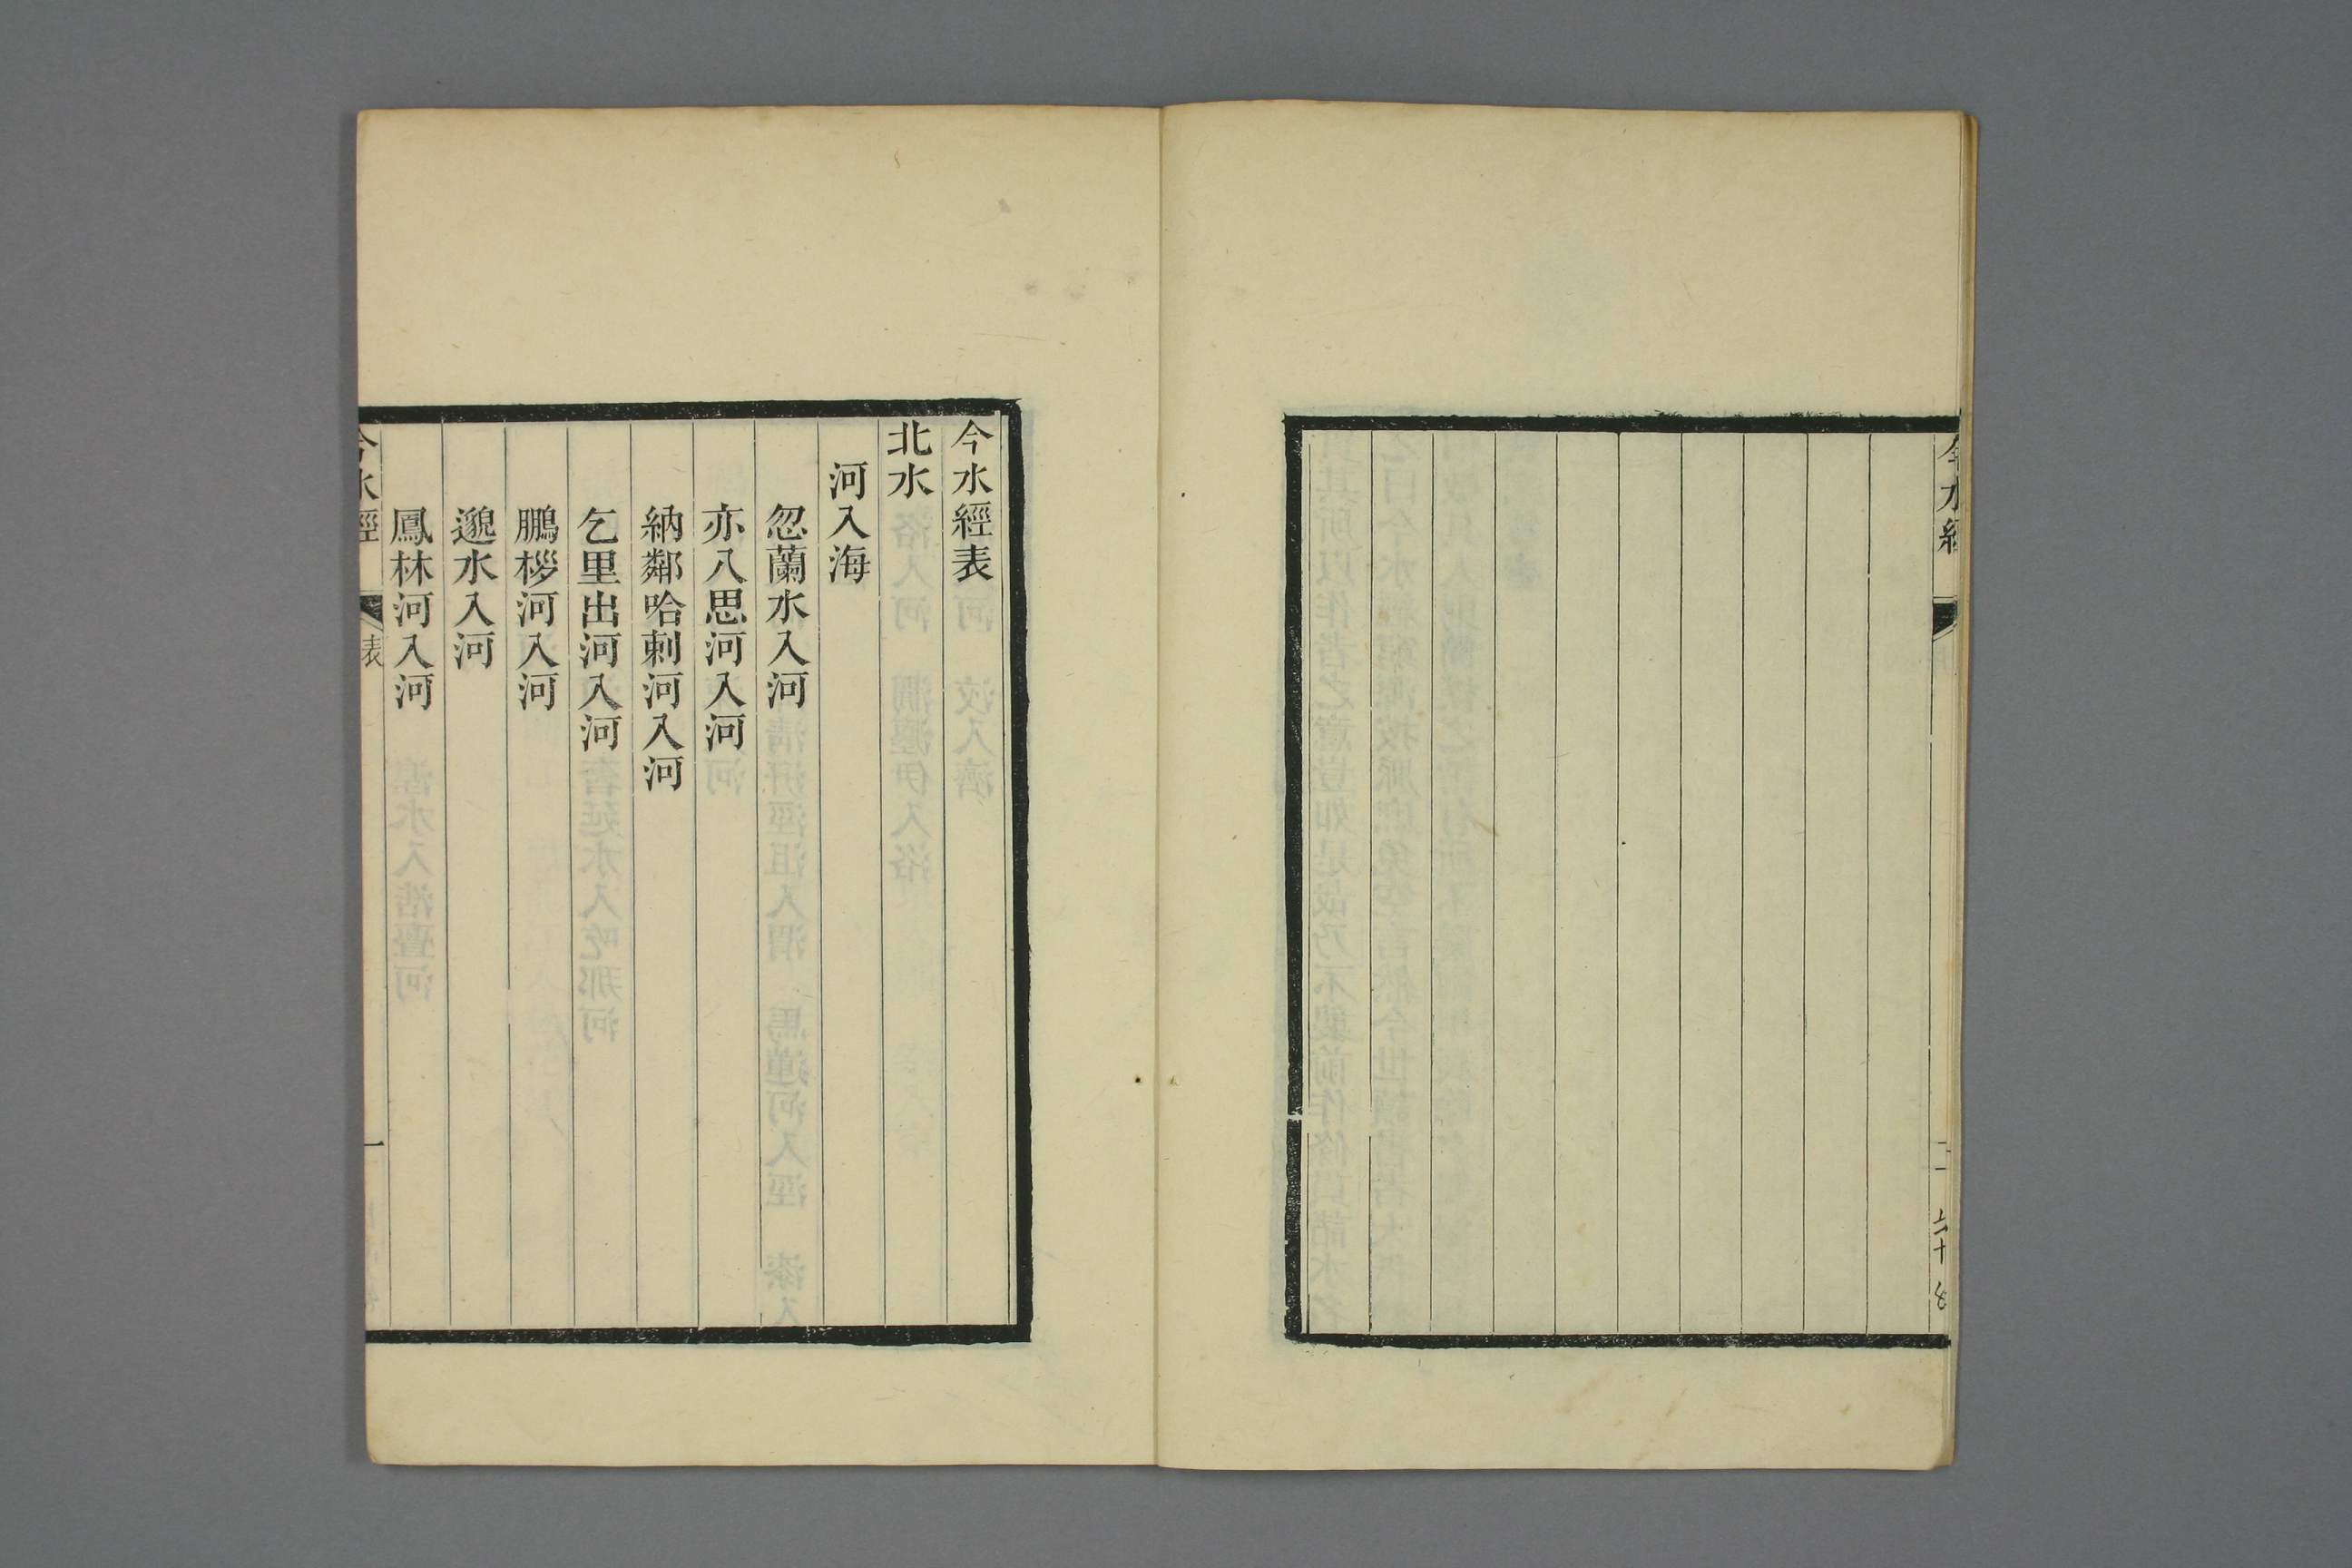 今水經
二
今水經表
北水
河入海
忽蘭水入河
亦八思河入河
納鄰哈剌河入河
乞里出河入河
鵬桚河入河
邈水入河
鳳林河入河
今水經
表
一